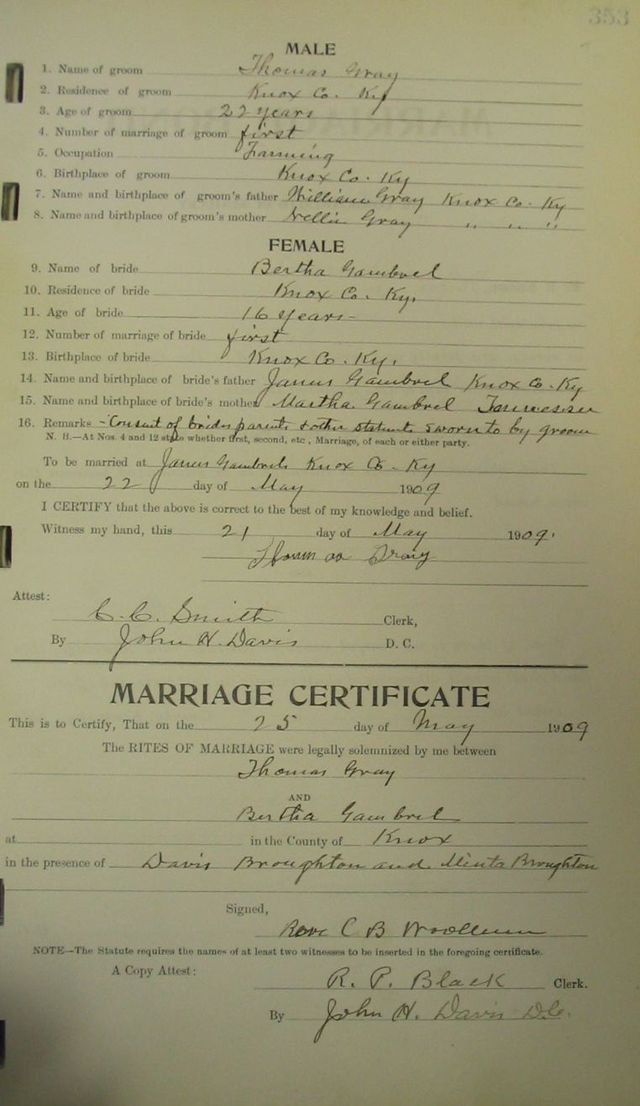 353
MALE
1. Name of groom Thomas Gray
2. Residence of groom Knox Co. Ky
3. Age of groom 22 years
4. Number of marriage of groom first
5. Occupation Farming
6. Birthplace of groom Knox Co. Ky
7. Name and birthplace of groom's father William Gray Knox Co. Ky
8. Name and birthplace of groom's mother Nellie Gray " " "
FEMALE
9. Name of bride Bertha Gambrel
10. Residence of bride Knox Co. Ky.
11. Age of bride 16 years
12. Number of marriage of bride first
13. Birthplace of bride Knox Co. Ky.
14. Name and birthplace of bride's father James Gambrel Knox Co. Ky
15. Name and birthplace of bride's mother Martha Gambrel Tennessee
16. Remarks - Consent of brides parents & other statments sworn to by groom
N. B.—At Nos. 4 and 12 state whether first, second, etc., Marriage, of each or either party.
To be married at James Gambrels Knox Co. Ky
on the 22 day of May 1909
I CERTIFY that the above is correct to the best of my knowledge and belief.
Witness my hand, this 21 day of May 1909.
Thomas Gray
Attest:
C. C. Smith Clerk,
By John H. Davis D. C.
MARRIAGE CERTIFICATE
This is to Certify, That on the 25 day of May 1909
The RITES OF MARRIAGE were legally solemnized by me between
Thomas Gray
AND
Bertha Gambrel
at in the County of Knox
in the presence of Davis Broughton and Minta Broughton
Signed,
C B
NOTE—The Statute requires the names of at least two witnesses to be inserted in the foregoing certificate.
A Copy Attest: R. P. Black Clerk.
By John H. Davis D.C.